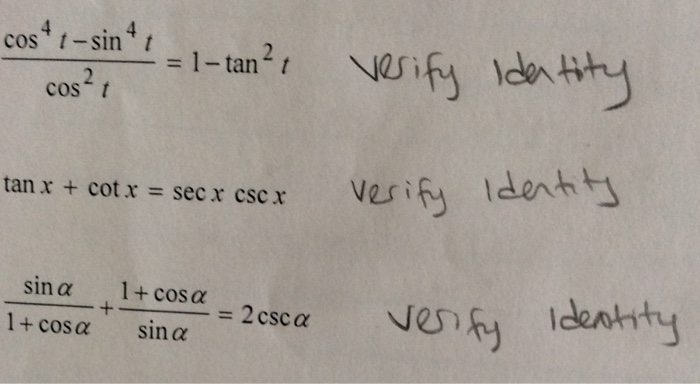 cos⁴ t − sin⁴ t / cos² t = 1 − tan² t verify Identity
tan x + cot x = sec x csc x verify Identity
sin α / 1 + cos α + 1 + cos α / sin α = 2 csc α verify Identity